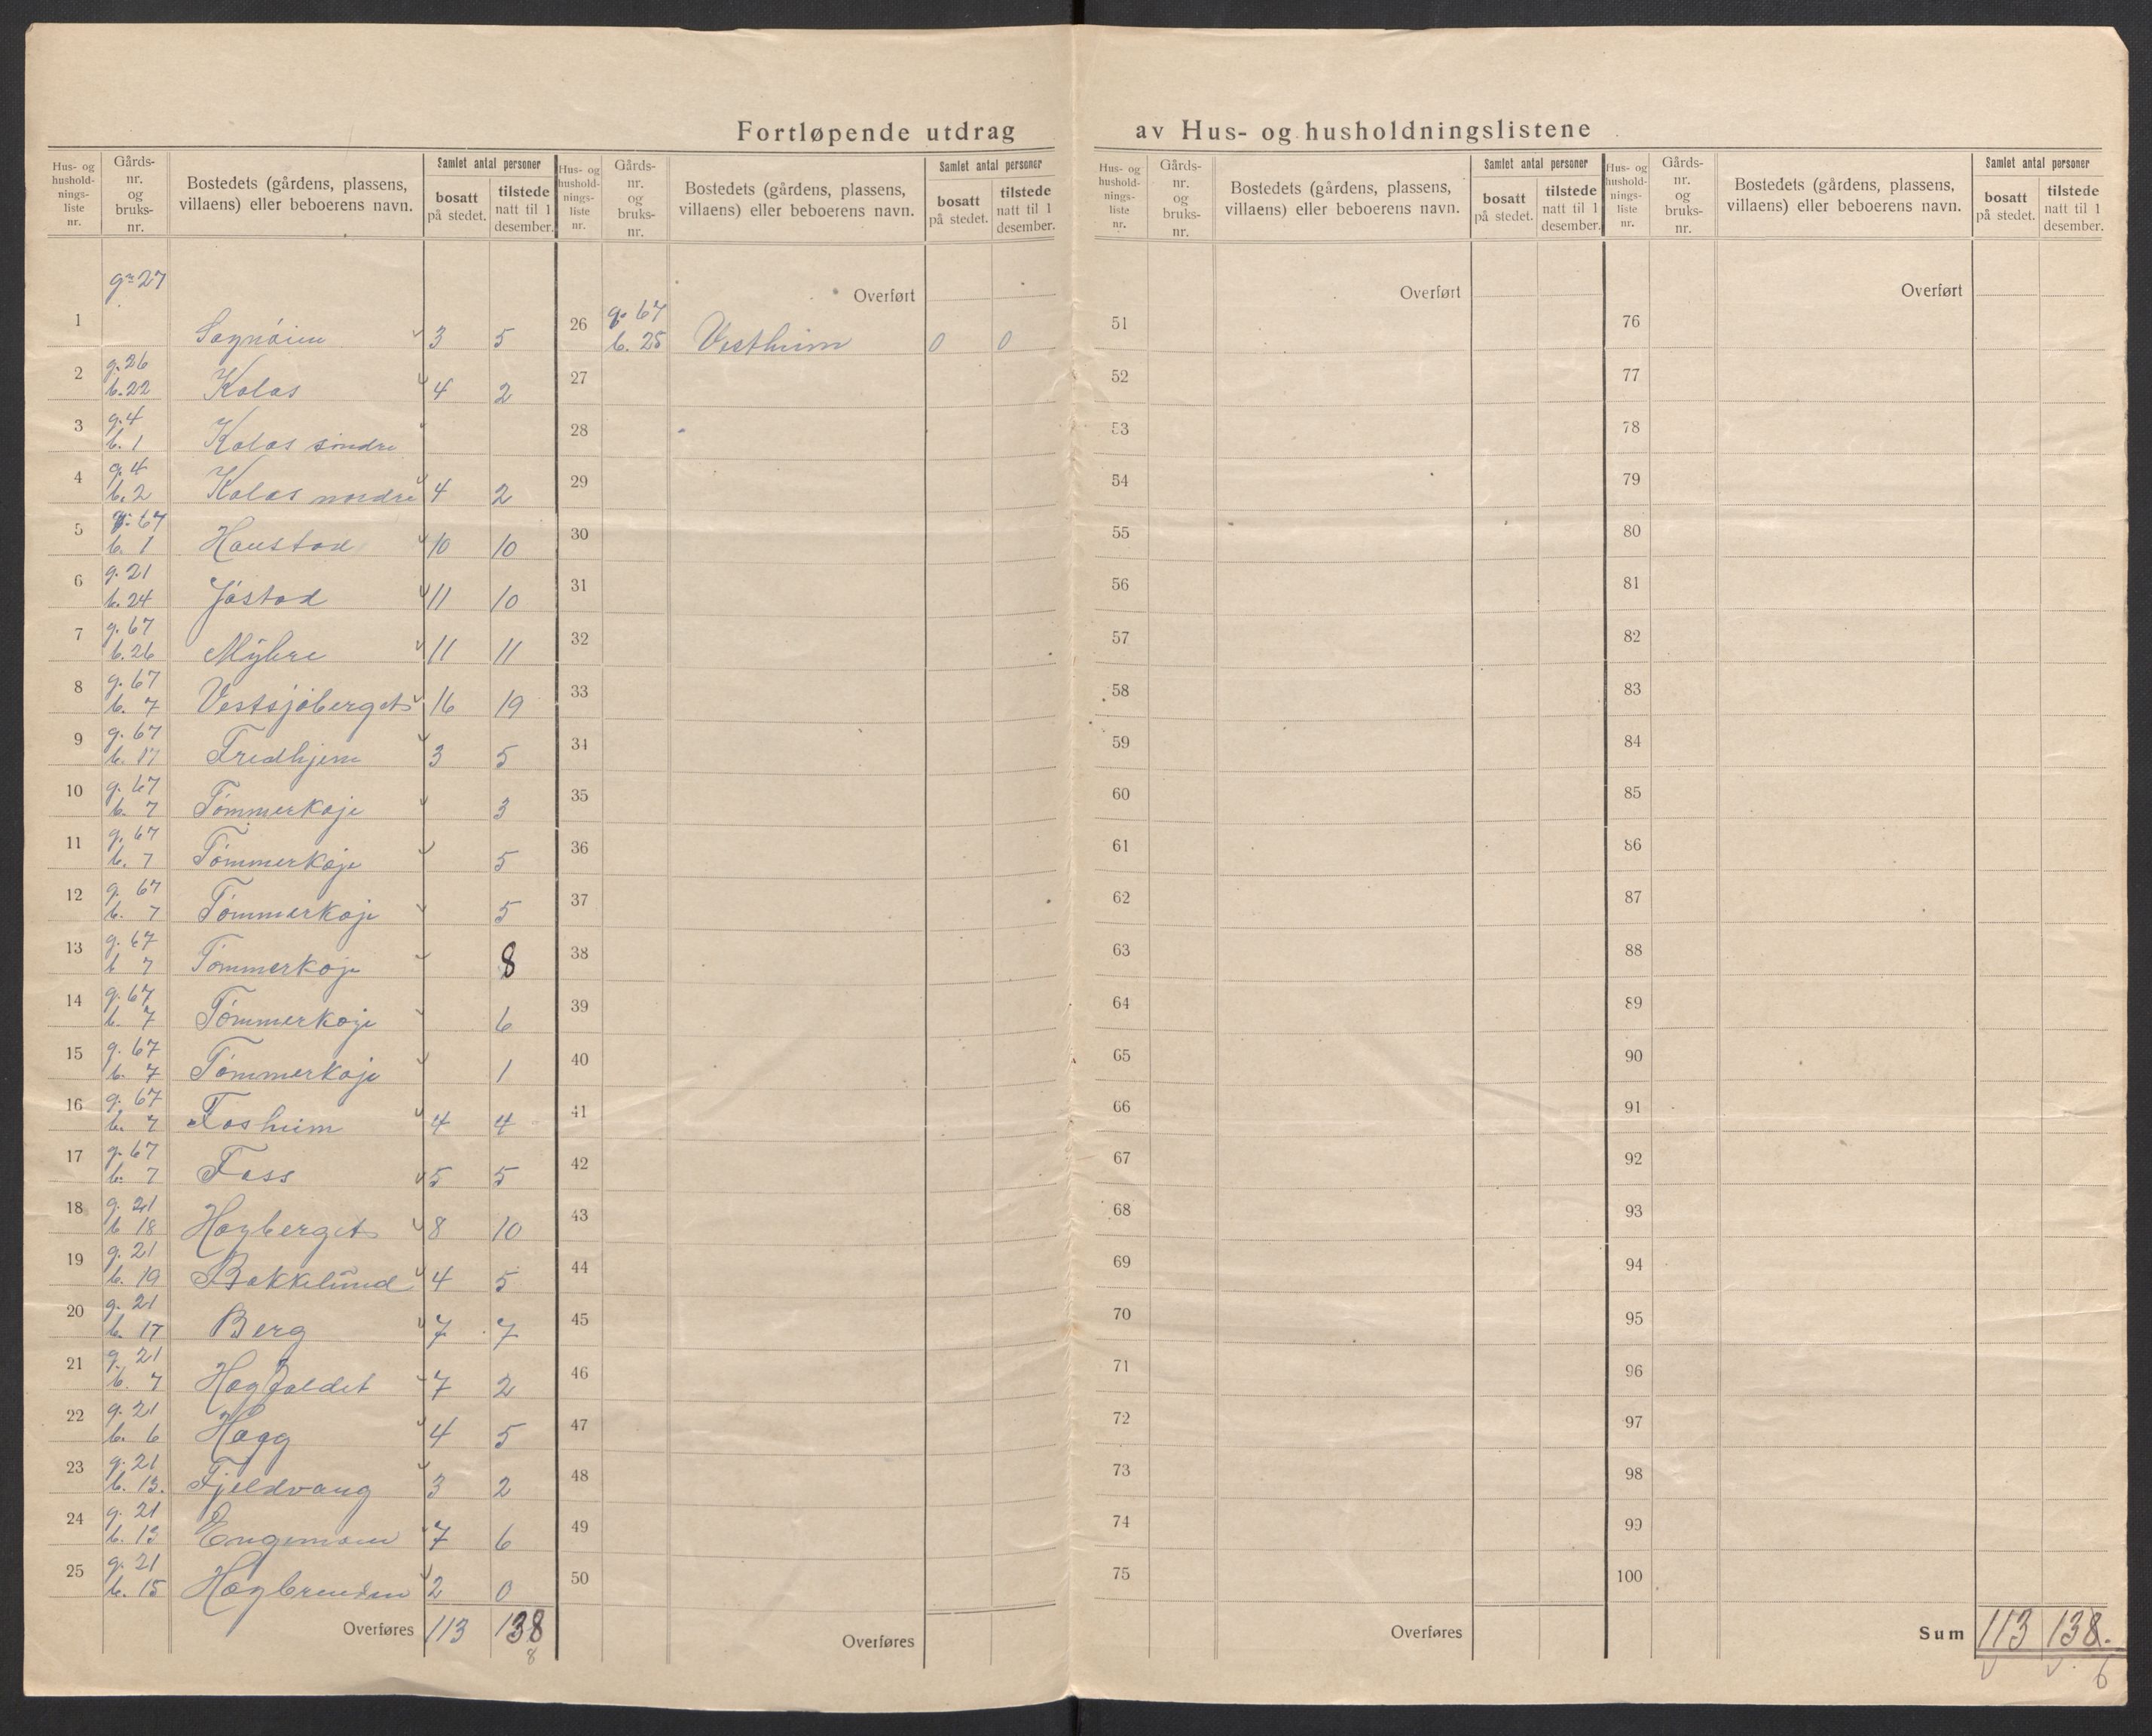 Fortløpende utdrag av Hus- og husholdningslistene
Hus- og hushold- nings- liste nr.
Gårds- nr. og bruks- nr.
Bostedets (gårdens, plassens, villaens) eller beboerens navn.
Samlet antal personer
bosatt på stedet.
tilstede natt til 1 desember.
Hus- og hushold- nings- liste nr.
Gårds- nr. og bruks- nr.
Bostedets (gårdens, plassens, villaens) eller beboerens navn.
Samlet antal personer
bosatt på stedet.
tilstede natt til 1 desember.
Hus- og hushold- nings- liste nr.
Gårds- nr. og bruks- nr.
Bostedets (gårdens, plassens, villaens) eller beboerens navn.
Samlet antal personer
bosatt på stedet.
tilstede natt til 1 desember.
Hus- og hushold- nings- liste nr.
Gårds- nr. og bruks- nr.
Bostedets (gårdens, plassens, villaens) eller beboerens navn.
Samlet antal personer
bosatt på stedet.
tilstede natt til 1 desember.
1 27 3 5
2 g. 26 b. 22 Kolos 4 2
3 g. 4 b. 1 Kolos söndre
4 g. 4 b. 2 Kolos nordre 4 2
5 g. 67 b. 1 Haustad 10 10
6 g. 21 b. 24 Jöstad 11 10
7 g. 67 b. 26 Myhre 11 11
8 g. 67 b. 7 Vestsjöberget 16 19
9 g. 67 b. 17 Fredhjem 3 5
10 g. 67 b. 7 Tömmerkoje 3
11 g. 67 b. 7 Tömmerkoje 5
12 g. 67 b. 7 Tömmerkoje 5
13 g. 67 b 7 Tömmerkoje 8
14 g. 67 b. 7 Tömmerkoje 6
15 g. 67 b. 7 Tömmerkoje 1
16 g. 67 b. 7 Fosheim 4 4
17 g. 67 b. 7 Foss 5 5
18 g. 21 b 18 Hogberget 8 10
19 g. 21 b. 19 Bakkelund 4 5
20 g. 21 b. 17 Berg 7 7
21 g. 21 b. 7 Hogfaldet 7 2
22 g. 21 b. 6 Hogg 4 5
23 g. 21 b. 13. Fjeldvang 3 2
24 g. 21 b. 13 Engemoen 7 6
25 g. 21 b. 15 2 0
Overføres 113 138
8
Overført
26 g. 67 b. 25 Vestheim 0 0
27
28
29
30
31
32
33
34
35
36
37
38
39
40
41
42
43
44
45
46
47
48
49
50
Overføres
Overført
51
52
53
54
55
56
57
58
59
60
61
62
63
64
65
66
67
68
69
70
71
72
73
74
75
Overføres
Overført
76
77
78
79
80
81
82
83
84
85
86
87
88
89
90
91
92
93
94
95
96
97
98
99
100
Sum 113 138.
6